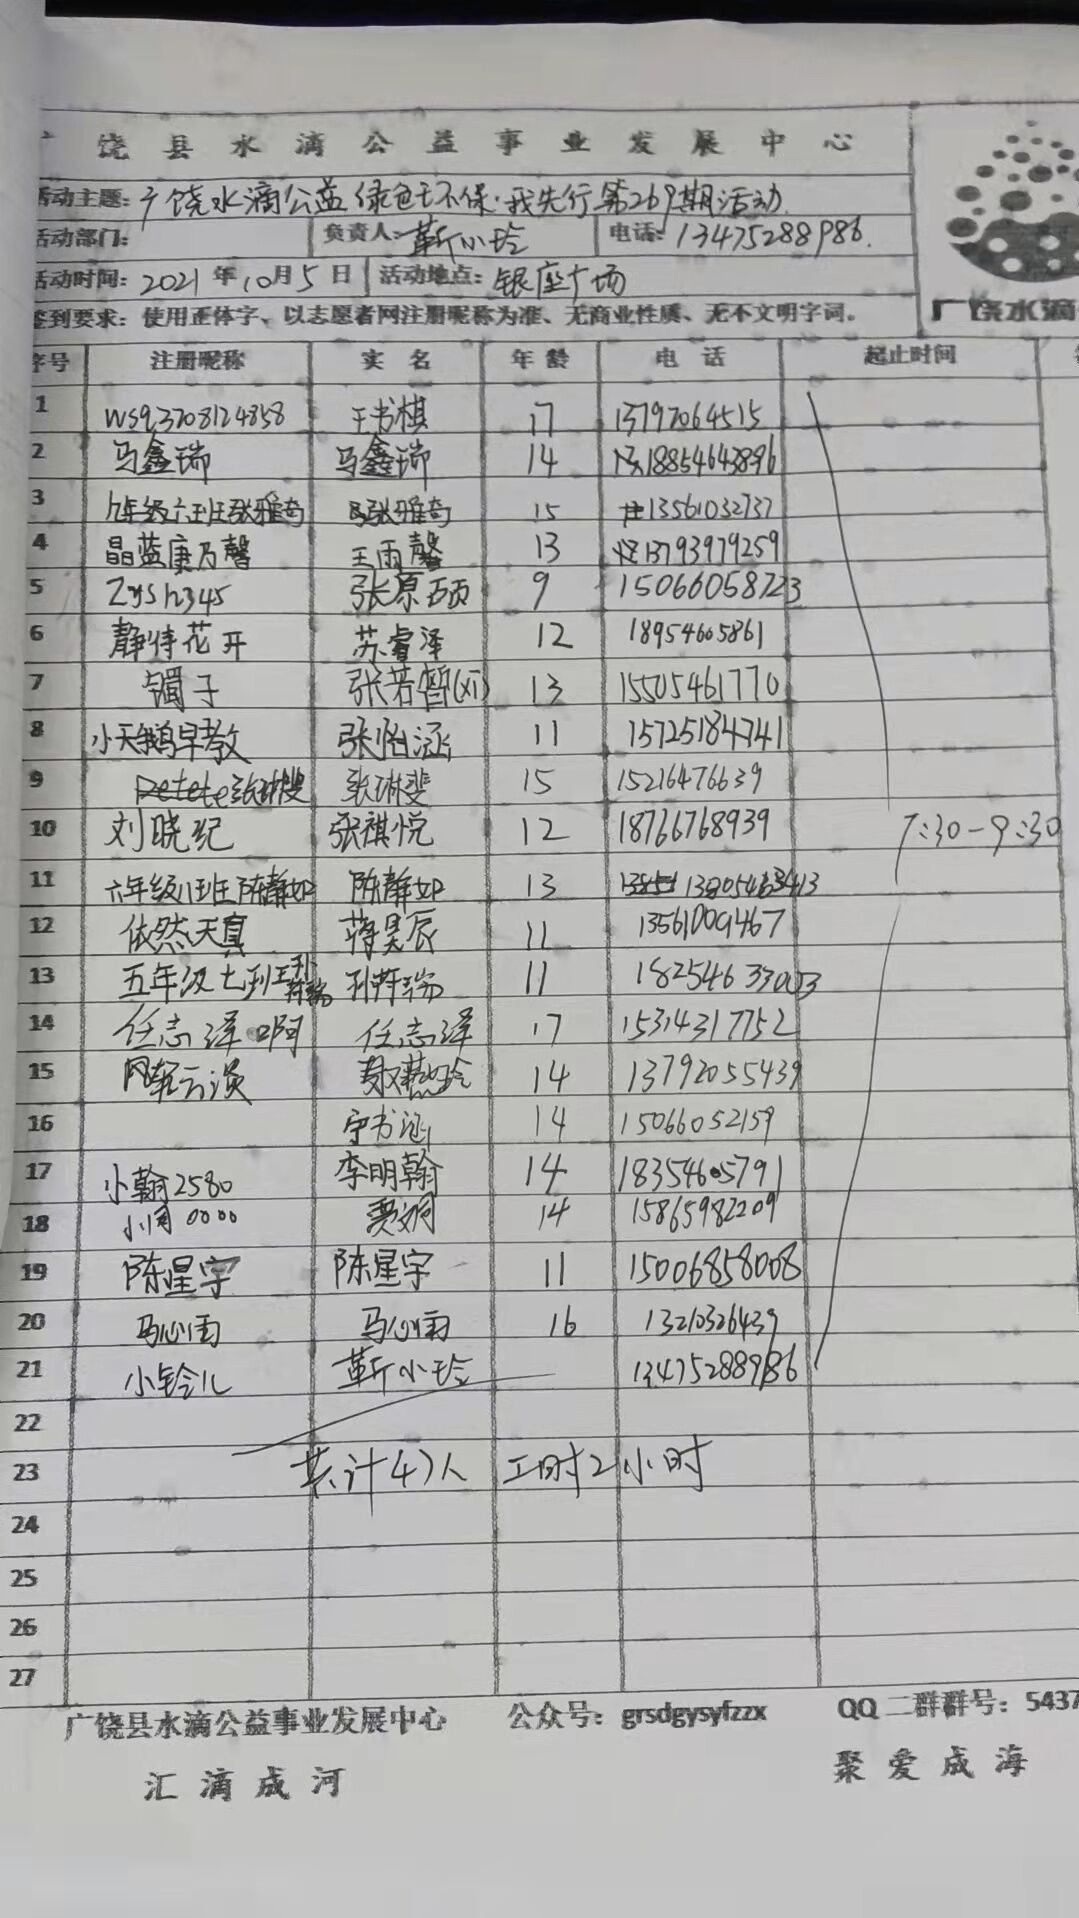 饶县水滴公益事业发展中心
活动主题: 广饶水滴公益 绿色环保·我先行第269期活动
活动部门: 负责人: 靳小玲 电话: 13475288986.
活动时间: 2021年10月5日 活动地点: 银座广场
签到要求: 使用正体字、以志愿者网注册昵称为准、无商业性质、无不文明字词。
广饶水滴
序号 注册昵称 实名 年龄 电话 起止时间
1 ws93708124858 王书棋 17 13792064515
2 马鑫瑞 马鑫瑞 14 18854643896
3 九年级六班张雅奇 张雅奇 15 13561032737
4 晶蓝康乃馨 王雨馨 13 13793979259
5 Zys12345 张原硕 9 15066058723
6 静待花开 苏睿泽 12 18954605861
7 镯子 张若皙(xī) 13 15505461770
8 小天鹅早教 张怡涵 11 15725184741
9 张琳斐 张琳斐 15 15216476639
10 刘晓纪 张祺悦 12 18766768939 7:30-9:30
11 六年级八班陈静如 陈静如 13 13805463413
12 依然天真 蒋昊辰 11 13561009467
13 五年级七班 11 18254633003
14 任志泽啊 任志泽 17 15314317752
15 风轻云淡 14 13792055439
16 宁书涵 14 15066052159
17 小翰2580 李明翰 14 18354605791
18 0000 14 15865982209
19 陈星宇 陈星宇 11 15006858008
20 马心雨 马心雨 16 13210326439
21 小铃儿 靳小玲 13475288986
22
23 共计47人 工时2小时
24
25
26
27
广饶县水滴公益事业发展中心 公众号: grsdgysyfzzx QQ二群群号: 5437
汇滴成河 聚爱成海